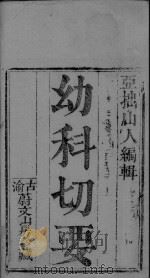 亞拙山人編輯
幼科切要
古渝蔚文山藏